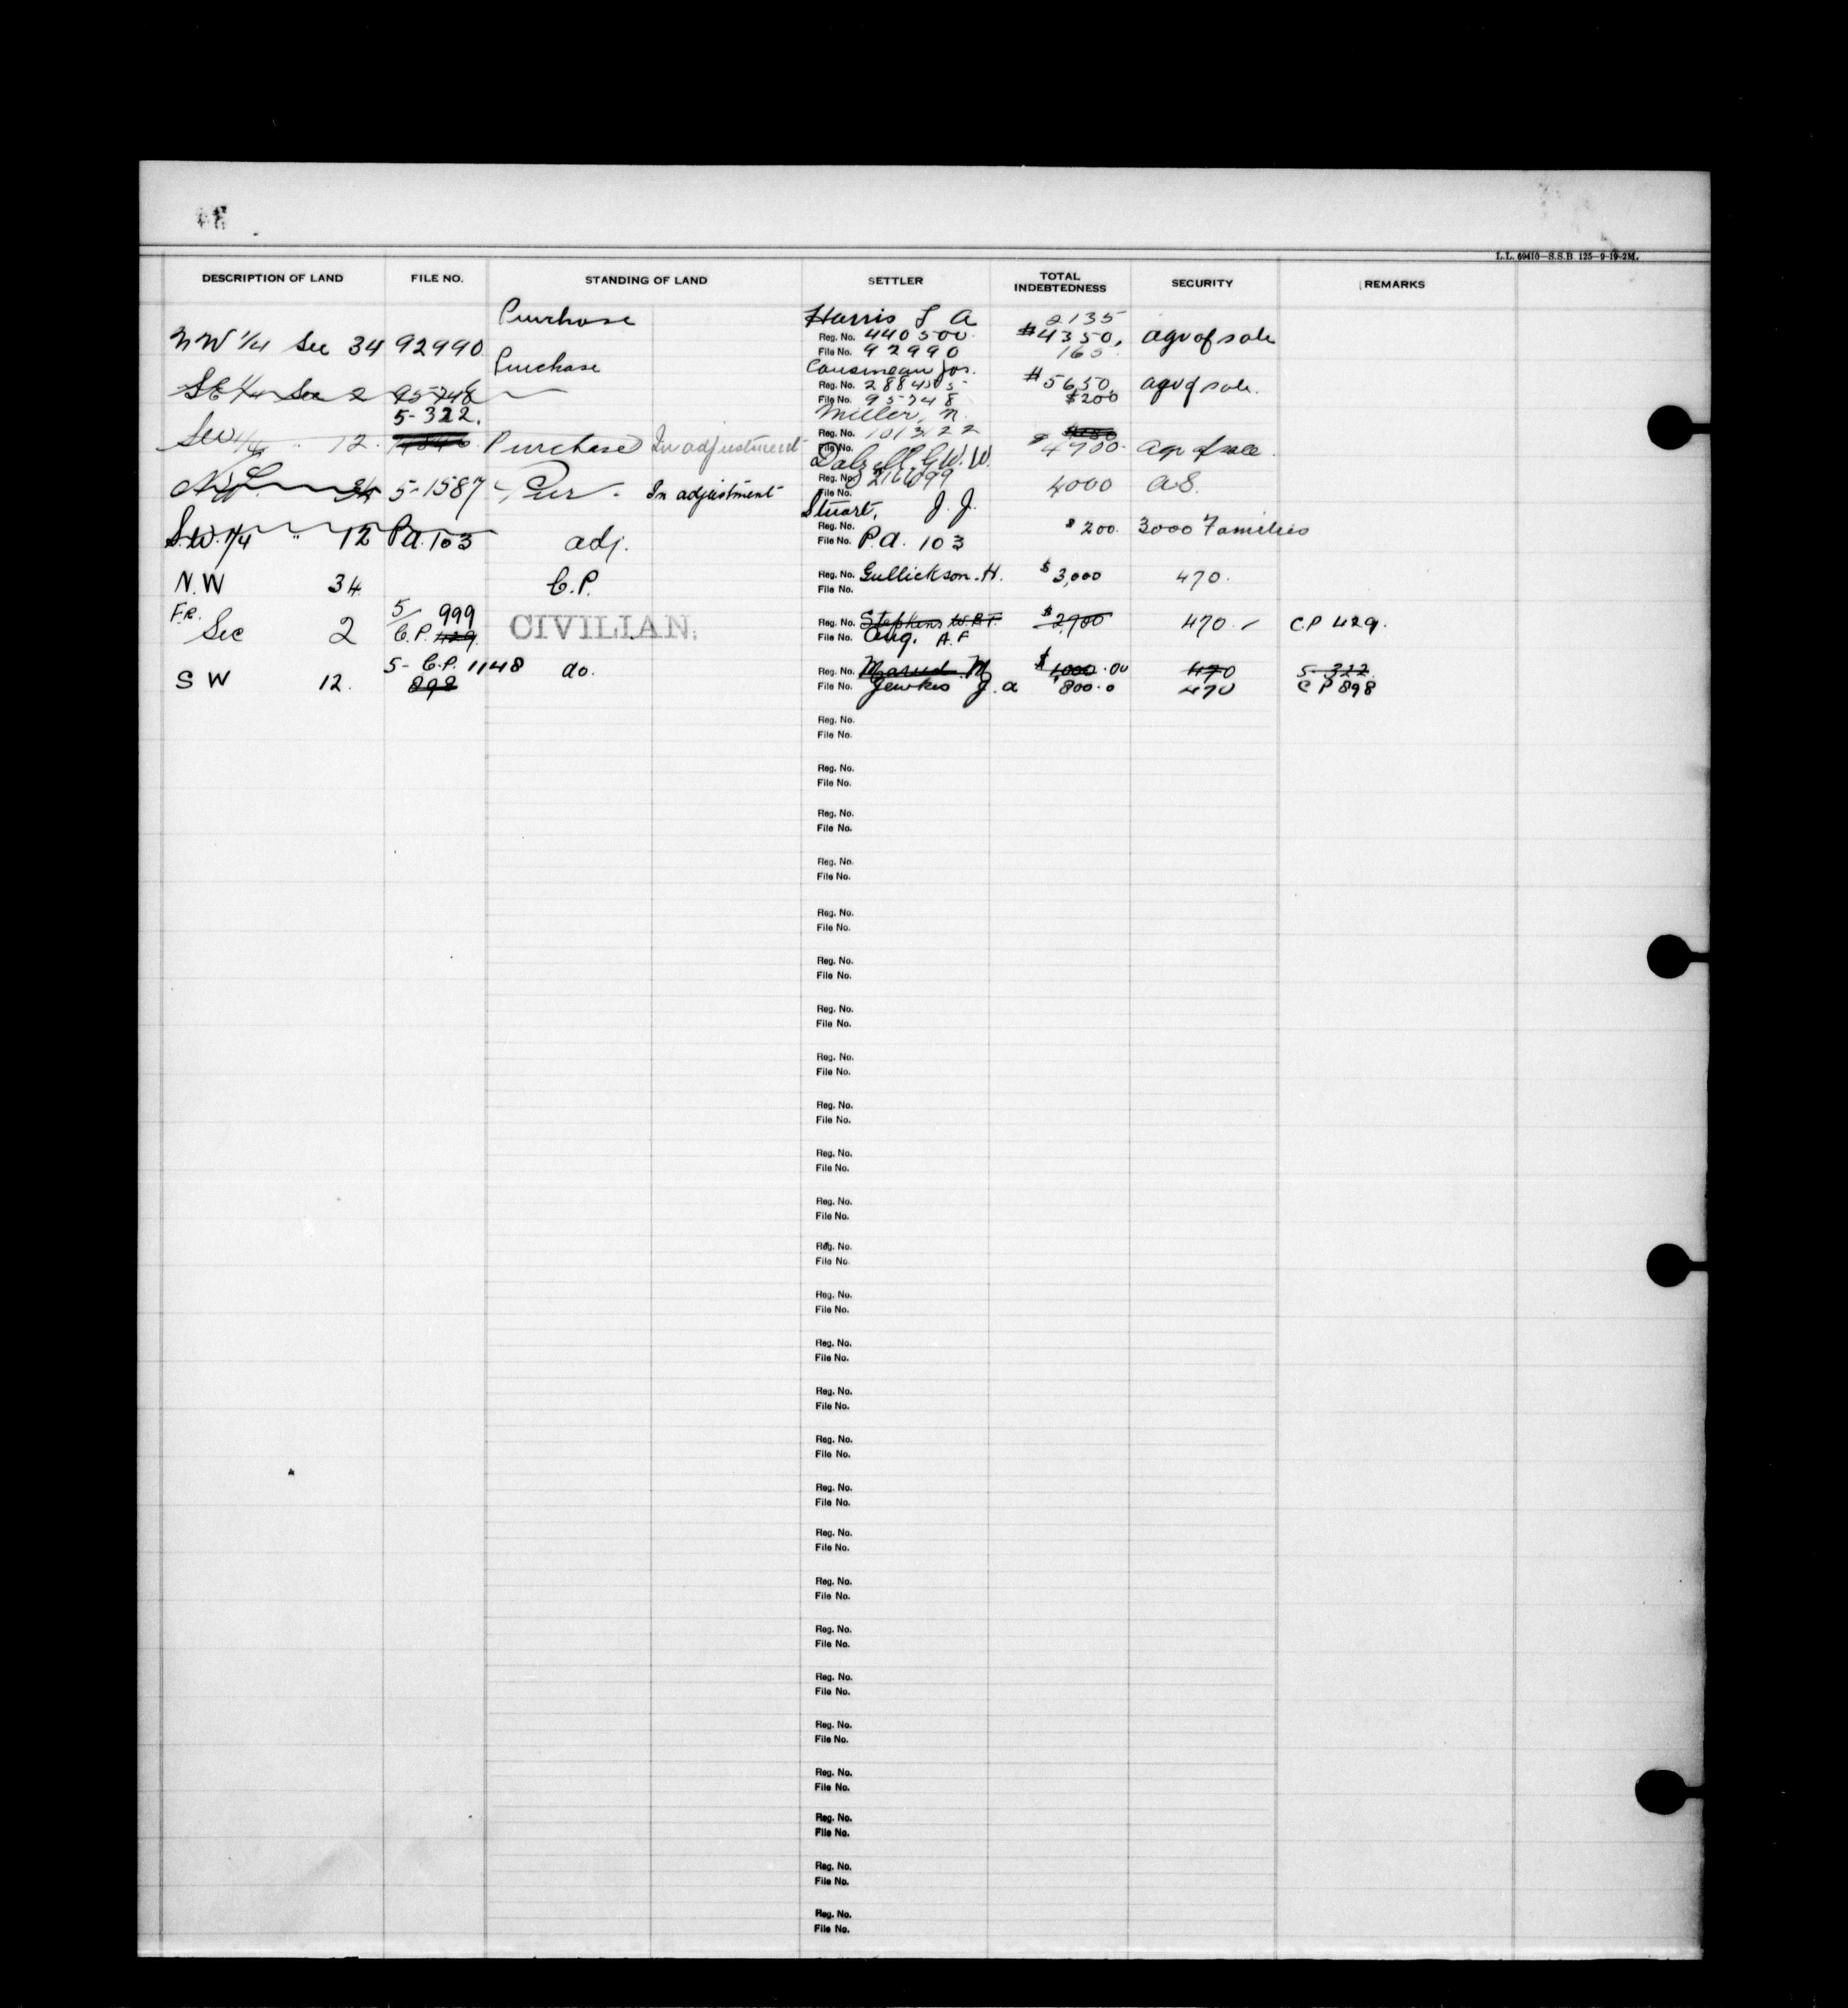 L.L. 69410—S.S.B. 125—9-19-2M.
DESCRIPTION OF LAND FILE NO. STANDING OF LAND SETTLER TOTAL INDEBTEDNESS SECURITY REMARKS
Purchase Harris 2135
NW 1/4 Sec 34 92990 Reg. No. 440500 $4350. agr of sale
File No. 92990 165
Purchase Cousineau Jos.
SE 1/4 Sec 2 95748 Reg. No. $5650 agr of sale.
File No. 95748 $200
5-322. Miller, N.
SW 1/4 " 12. Purchase In adjustment Reg. No. 1013122 $4700. agr of sale
File No.
Dalzell, G.W.W.
34 5-1587 Pur. In adjustment Reg. No. 4000 A.S.
File No.
Stuart, J. J.
S.W. 1/4 " 12 P.A. 103 adj. Reg. No. $200. 3000 Families
File No. P.A. 103
N.W 34 C.P. Reg. No. Gullickson. H. $3,000 470.
File No.
FR. 5/ 999
Sec 2 C.P. 429 CIVILIAN. Reg. No. Stephens $2,900 470. CP 429.
File No. A.F
5- C.P. 1148
S W 12. 898 do. Reg. No. M $1,000.00 470 5-322
File No. Jewkes J. A 800.0 470 CP 898
Reg. No.
File No.
Reg. No.
File No.
Reg. No.
File No.
Reg. No.
File No.
Reg. No.
File No.
Reg. No.
File No.
Reg. No.
File No.
Reg. No.
File No.
Reg. No.
File No.
Reg. No.
File No.
Reg. No.
File No.
Reg. No.
File No.
Reg. No.
File No.
Reg. No.
File No.
Reg. No.
File No.
Reg. No.
File No.
Reg. No.
File No.
Reg. No.
File No.
Reg. No.
File No.
Reg. No.
File No.
Reg. No.
File No.
Reg. No.
File No.
Reg. No.
File No.
Reg. No.
File No.
Reg. No.
File No.
Reg. No.
File No.